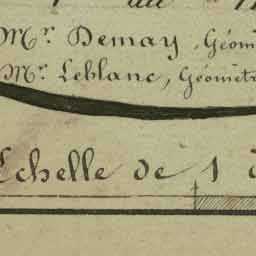 Mr. Demay, Géom
Mr. Leblanc, Géomèt
Echelle de 1 à